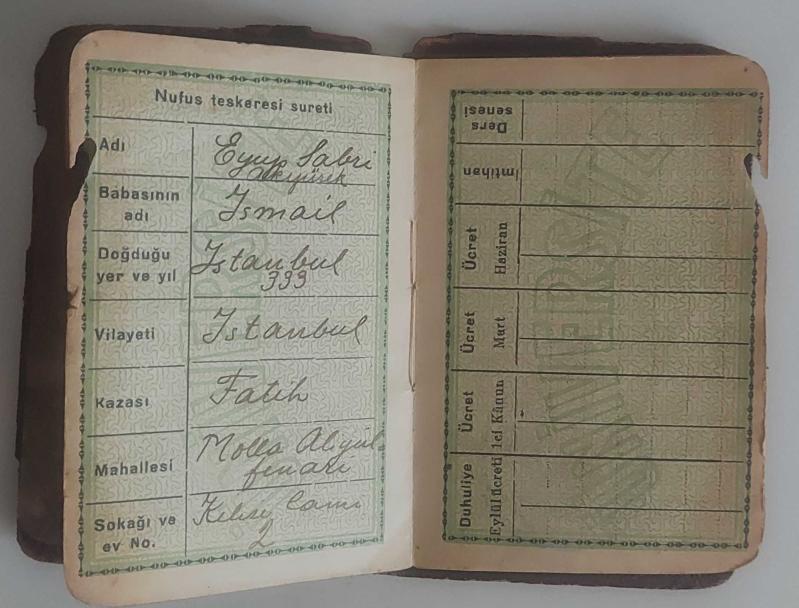 Nufus teskeresi sureti
Adı Eyup Sabri
Akyürek
Babasının adı Ismail
Doğduğu yer ve yıl Istanbul
333
Vilayeti Istanbul
Kazası Fatih
Mahallesi Molla Aliyül
fenari
Sokağı ve ev No. Cami
2
Ders senesi
İmtihan
Ücret Haziran
Ücret Mart
Ücret 1ci Kânun
Duhuliye Eylûl ücreti